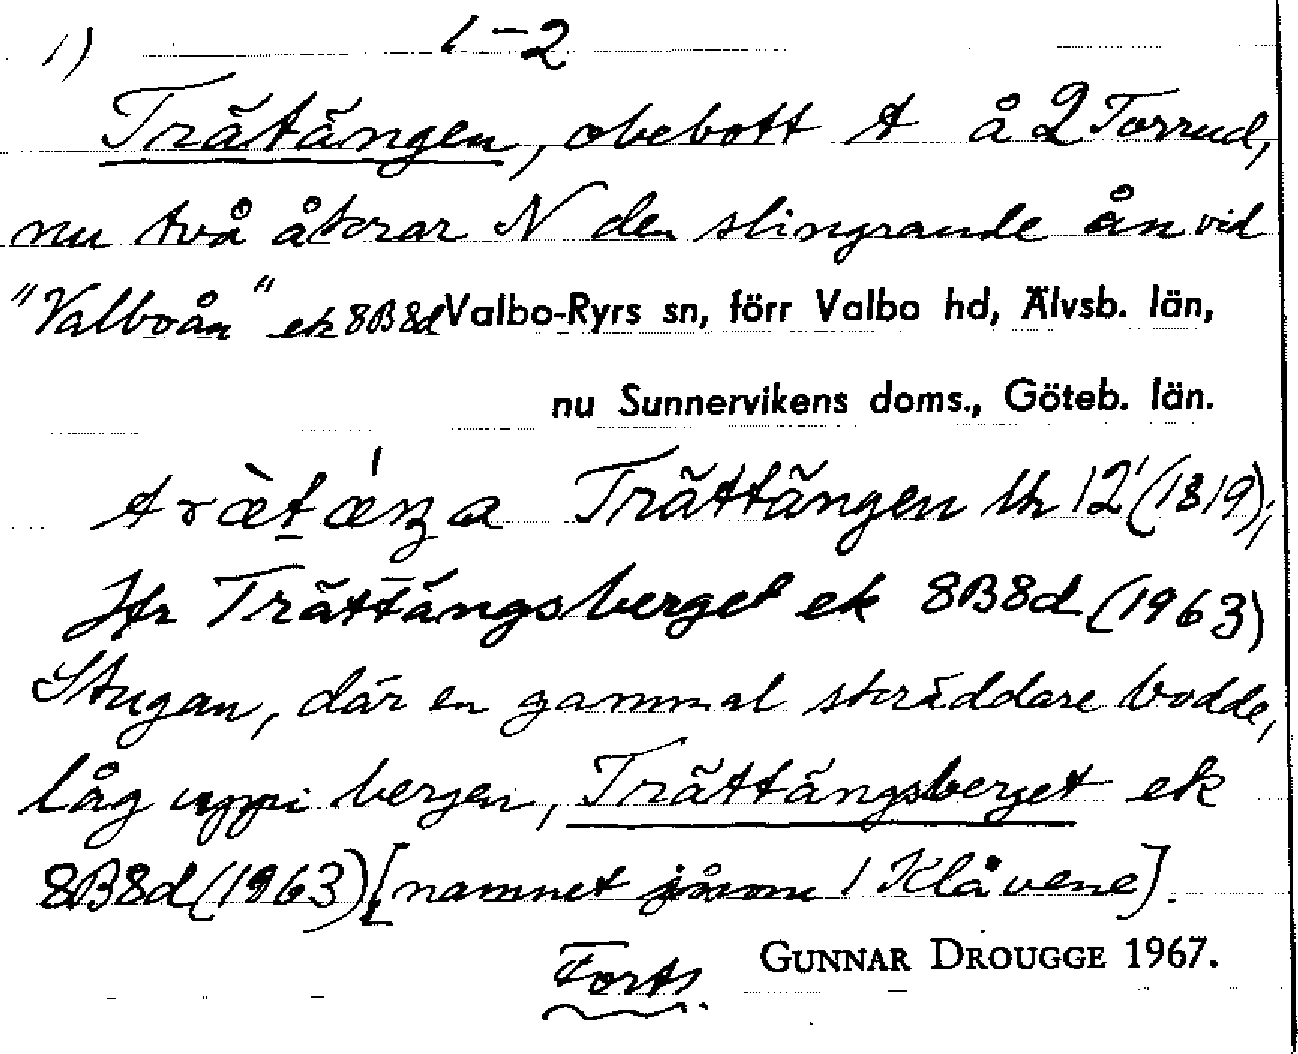 1) 1-2
Trätängen, obebott t å 2 Torrud,
nu två åkrar N den slingrande ån vid
"Valboån" ek 8B8d Valbo-Ryrs sn, förr Valbo hd, Älvsb. län,
nu Sunnervikens doms., Göteb. län.
Trättängen lh 12 (1819);
Jfr Trättängsberget ek 8B8d (1963)
Stugan, där en gammal skräddare bodde,
låg uppi bergen, Trättängsberget ek
8B8d (1963) [namnet 1 Klåvene].
Forts. GUNNAR DROUGGE 1967.